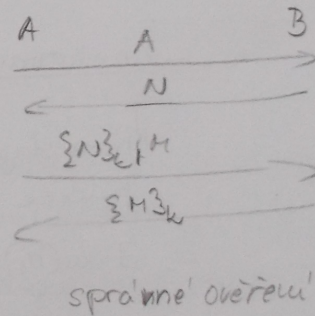 A B
A
N
{N}k, M
{M}k
správné ověření